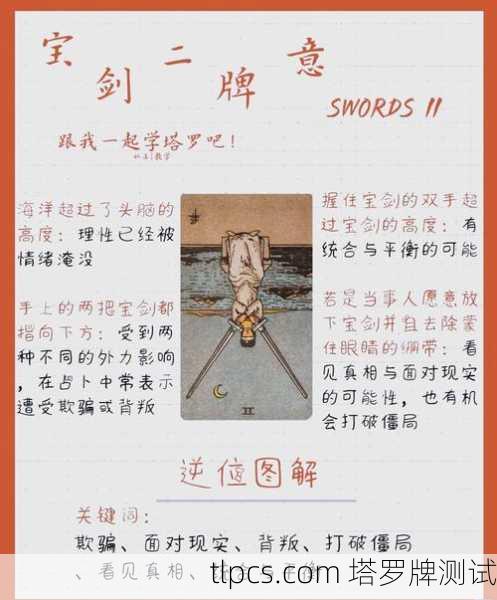 宝剑二牌意
SWORDS II
跟我一起学塔罗吧！
海洋超过了头脑的
高度：理性已经被
情绪淹没
手上的两把宝剑都
指向下方：受到两
种不同的外力影响
，在占卜中常表示
遭受欺骗或背叛
II
握住宝剑的双手超
过宝剑的高度：有
统合与平衡的可能
若是当事人愿意放
下宝剑并且去除蒙
住眼睛的绷带：看
见真相与面对现实
的可能性，也有机
会打破僵局
逆位图解
关键词：
欺骗、面对现实、背叛、打破僵局
、看见真相、统合与平衡
tlpcs.com 塔罗牌测试